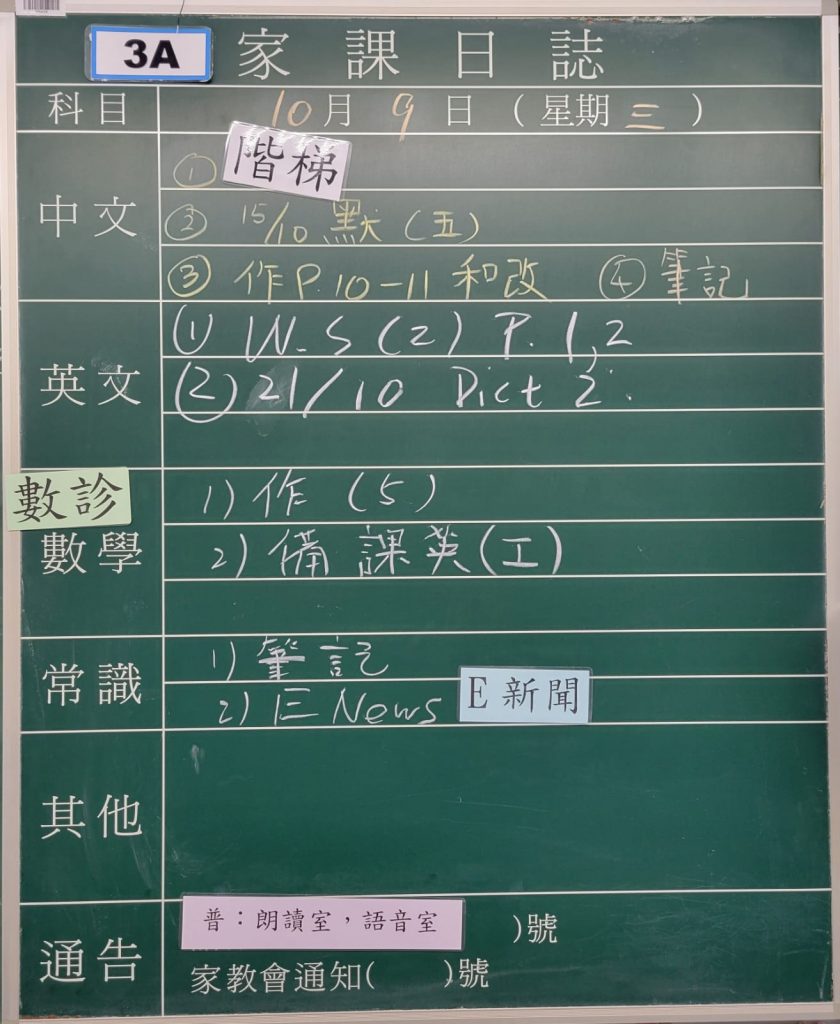 3A 家課日誌
科目 10月9日（星期三）
① 階梯
中文 ② 15/10 默（五）
③ 作P.10-11 和改 ④ 筆記
(1) W.S (2) P. 1,2
英文 (2) 21/10 Dict 2.
數診 1) 作 (5)
數學 2) 備課英(工)
1) 筆記
常識 2) E News E 新聞
其他
普：朗讀室，語音室 )號
通告 家教會通知( )號